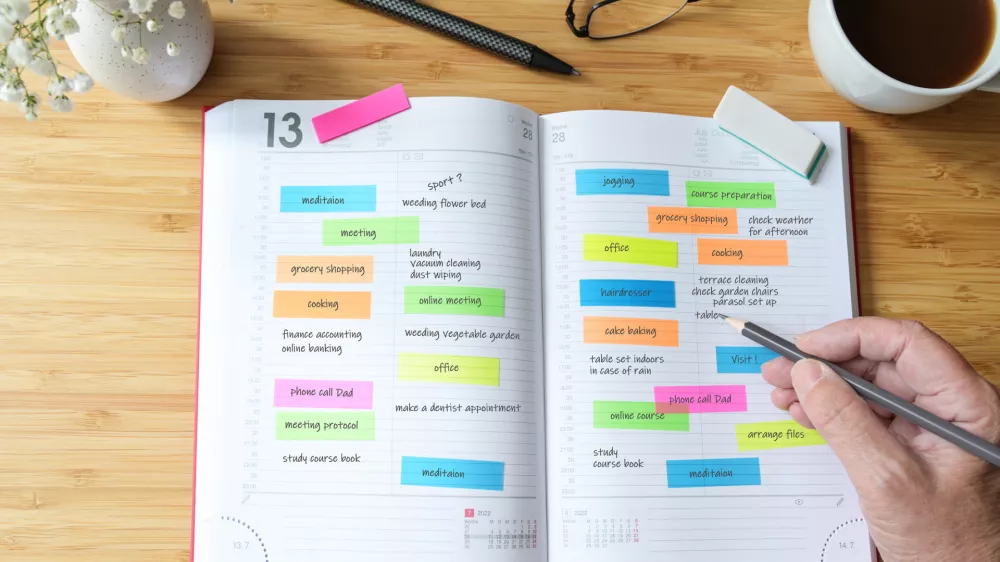 13
28
sport ?
meditaion
weeding flower bed
meeting
laundry
vacuum cleaning
dust wiping
grocery shopping
cooking
online meeting
finance accounting
online banking
weeding vegetable garden
office
phone call Dad
make a dentist appointment
meeting protocol
study course book
meditaion
7 2022
13. 7.
28
jogging
course preparation
grocery shopping
check weather
for afternoon
office
cooking
terrace cleaning
check garden chairs
parasol set up
hairdresser
table
cake baking
table set indoors
in case of rain
Visit !
phone call Dad
online course
arrange files
study
course book
meditaion
8 2022
14. 7.